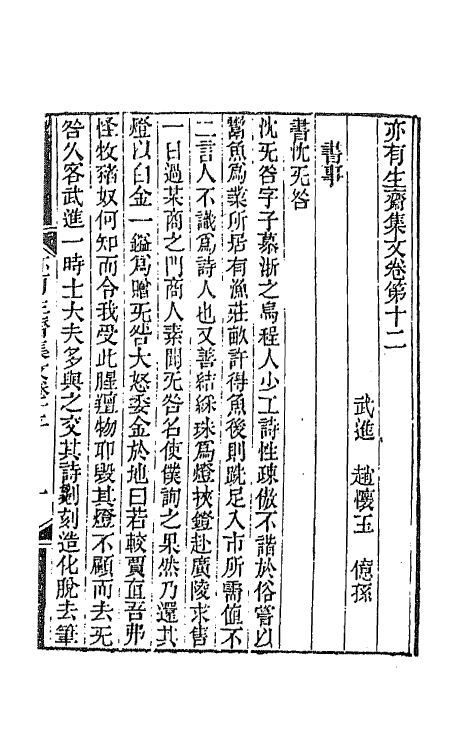 亦有生齋集文卷第十二
武進　趙懷玉　億孫
書事
書沈旡咎
沈旡咎字子慕浙之烏程人少工詩性疎傲不諧於俗嘗以
鬻魚爲業所居有漁莊畝許得魚後則跣足入市所需値不
二言人不識爲詩人也又善結綵珠爲燈挾鐙赴廣陵求售
一日過某商之門商人素聞旡咎名使僕詢之果然乃還其
燈以白金一鎰爲贈旡咎大怒委金於地曰若較賈直吾弗
怪牧豬奴何知而令我受此腥羶物耶毀其燈不顧而去旡
咎久客武進一時士大夫多與之交其詩劖刻造化脫去筆
亦有生齋集文卷十二
一